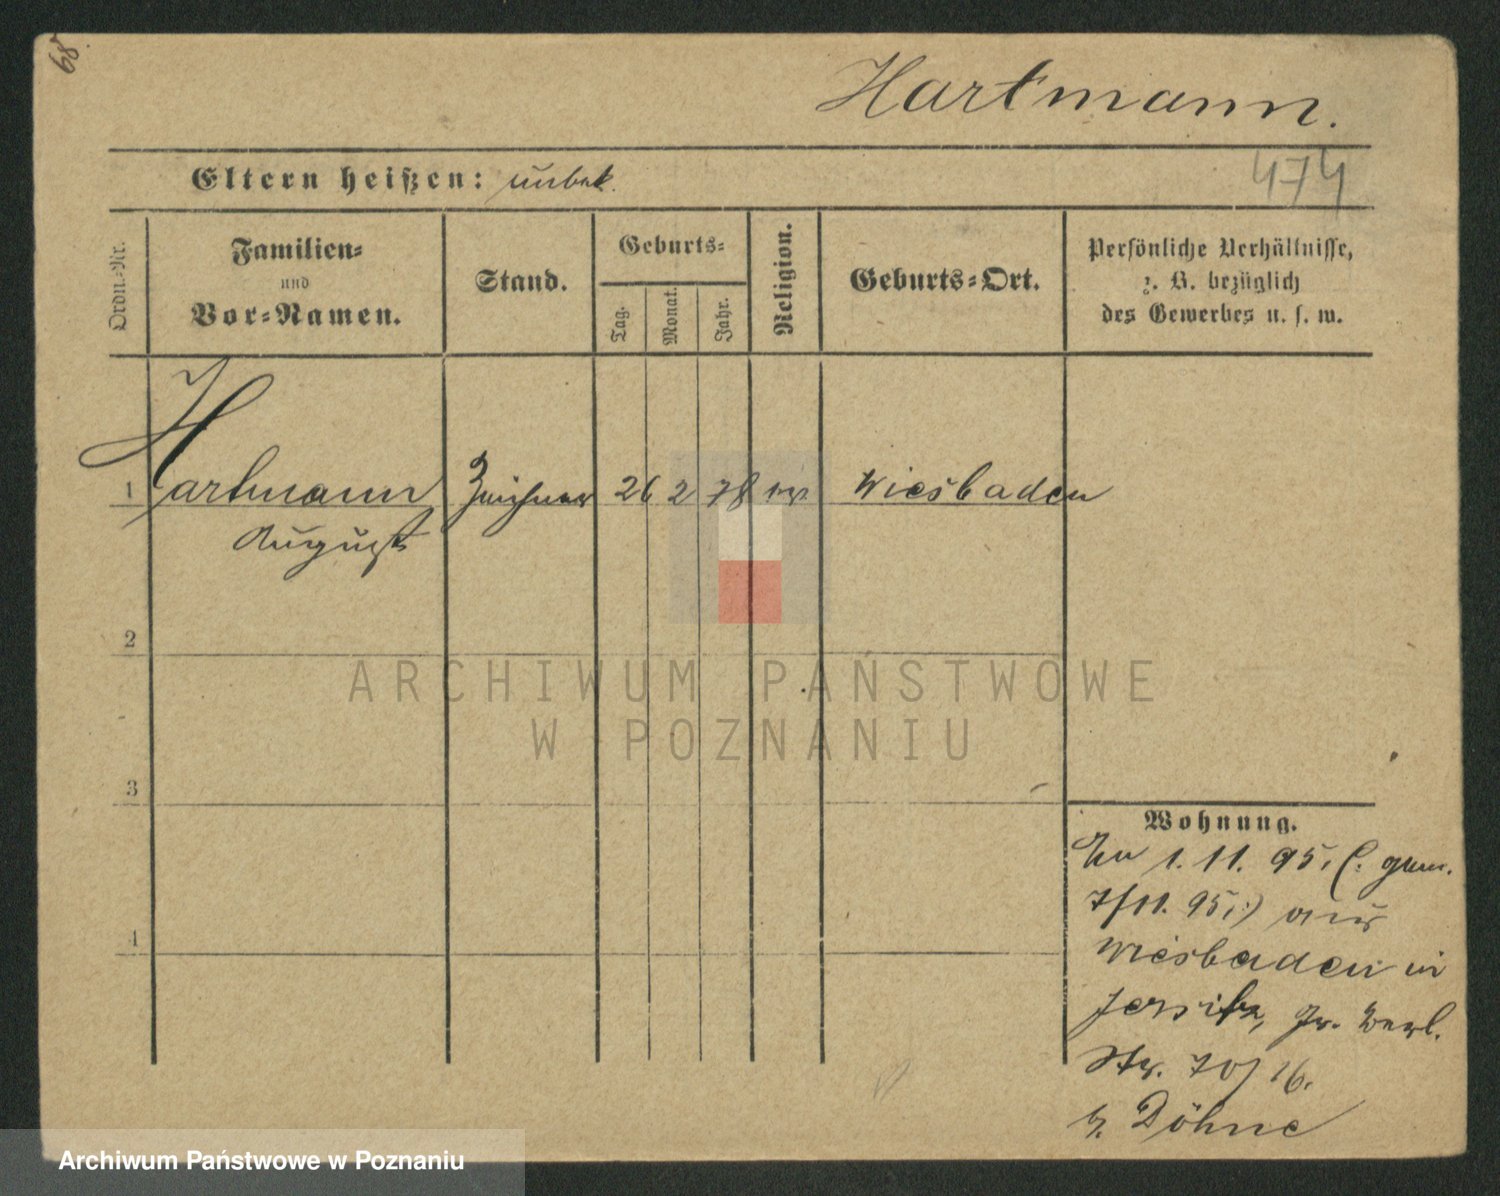 68
Hartmann.
Eltern heißen: unbek.
474
Ordn.-Nr.
Familien-
und
Vor-Namen.
Stand.
Geburts-
Tag.
Monat.
Jahr.
Religion.
Geburts-Ort.
Persönliche Verhältnisse,
z. B. bezüglich
des Gewerbes u. s. w.
1 Hartmann Zeichner 26 2 78 Wiesbaden
August
2
ARCHIWUM PAŃSTWOWE
W POZNANIU
3
4
Wohnung.
1. 11. 95, (: gem.
7/11. 95,:) aus
Wiesbaden in
Jersitz, Gr. Berl.
Str. 70/16.
b. Döhne
Archiwum Państwowe w Poznaniu